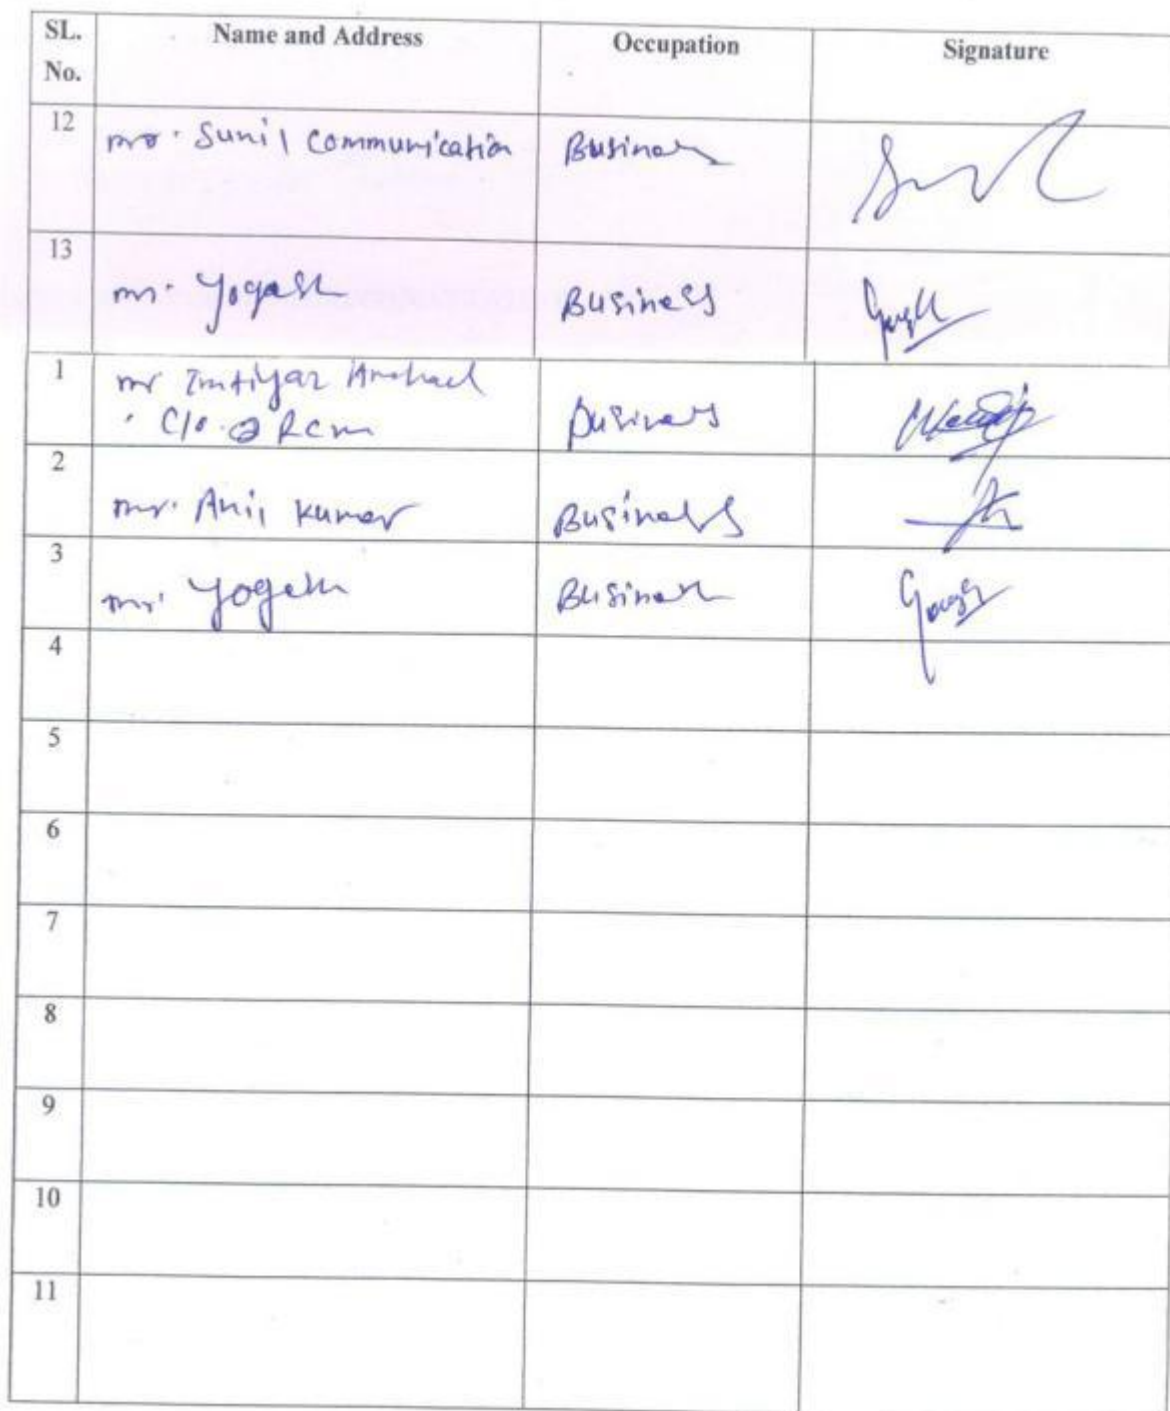 SL. No. Name and Address Occupation Signature
12 Sunil Communication Business
13 mr. Yogesh Business
1 mr Imtiyaz
C/o. Rcm Business
2 mr. Anil Kumar Business
3 mr. Yogesh Business
4
5
6
7
8
9
10
11